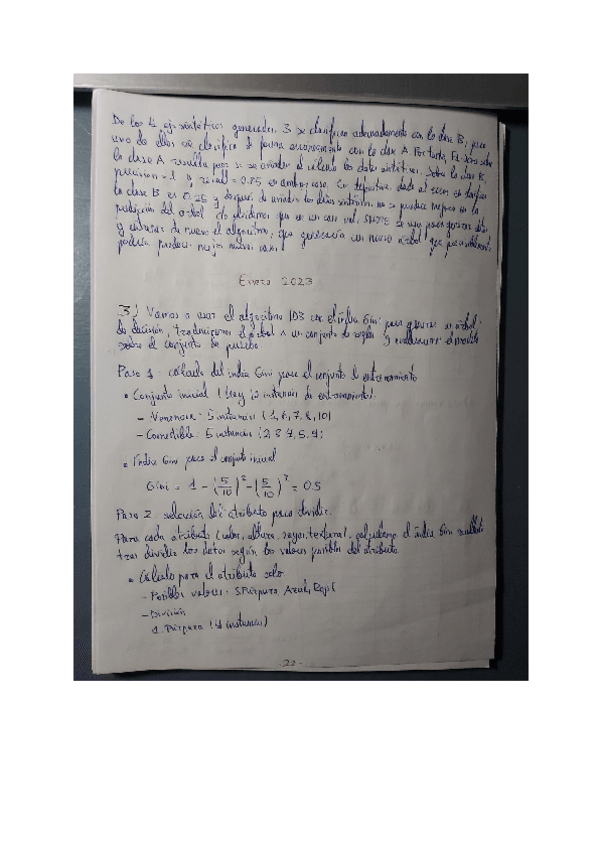 De los 4 ejs sintéticos generados, 3 se clasifican adecuadamente con la clase B, pero
uno de ellos se clasifica de forma con la clase A. Por tanto,
la clase A resulta se al cálculo los datos sintéticos. Sobre la clase B,
precision = 1 y recall = en ambos casos. En definitiva, dado el
la clase B es y después de añadir los datos sintéticos no se produce mejora en la
predicción del árbol. No olvidemos que en un caso real, SMOTE se usa para generar datos
y entrenar de nuevo el algoritmo, que generaría un nuevo árbol que posiblemente
podría producir mejor
Enero 2023
3) Vamos a usar el algoritmo ID3 con el índice Gini para generar un árbol
de decisión, traduciremos el árbol a un conjunto de reglas y evaluaremos el modelo
sobre el conjunto de prueba.
Paso 1: cálculo del índice Gini para el conjunto de entrenamiento
• Conjunto inicial (hay 10 instancias de entrenamiento):
- Venenosa: 5 instancias (1, 6, 7, 8, 10)
- Comestible: 5 instancias (2, 3, 4, 5, 9)
• Índice Gini para el conjunto inicial
Gini = 1 - (5/10)² - (5/10)² = 0.5
Paso 2: selección del atributo para dividir.
Para cada atributo (color, altura, rayas, textura), calculamos el índice Gini resultante
tras dividir los datos según los valores posibles del atributo.
• Cálculo para el atributo color
- Posibles valores: {Púrpura, Azul, Rojo}
- División
1. Púrpura (4 instancias)
- 22 -